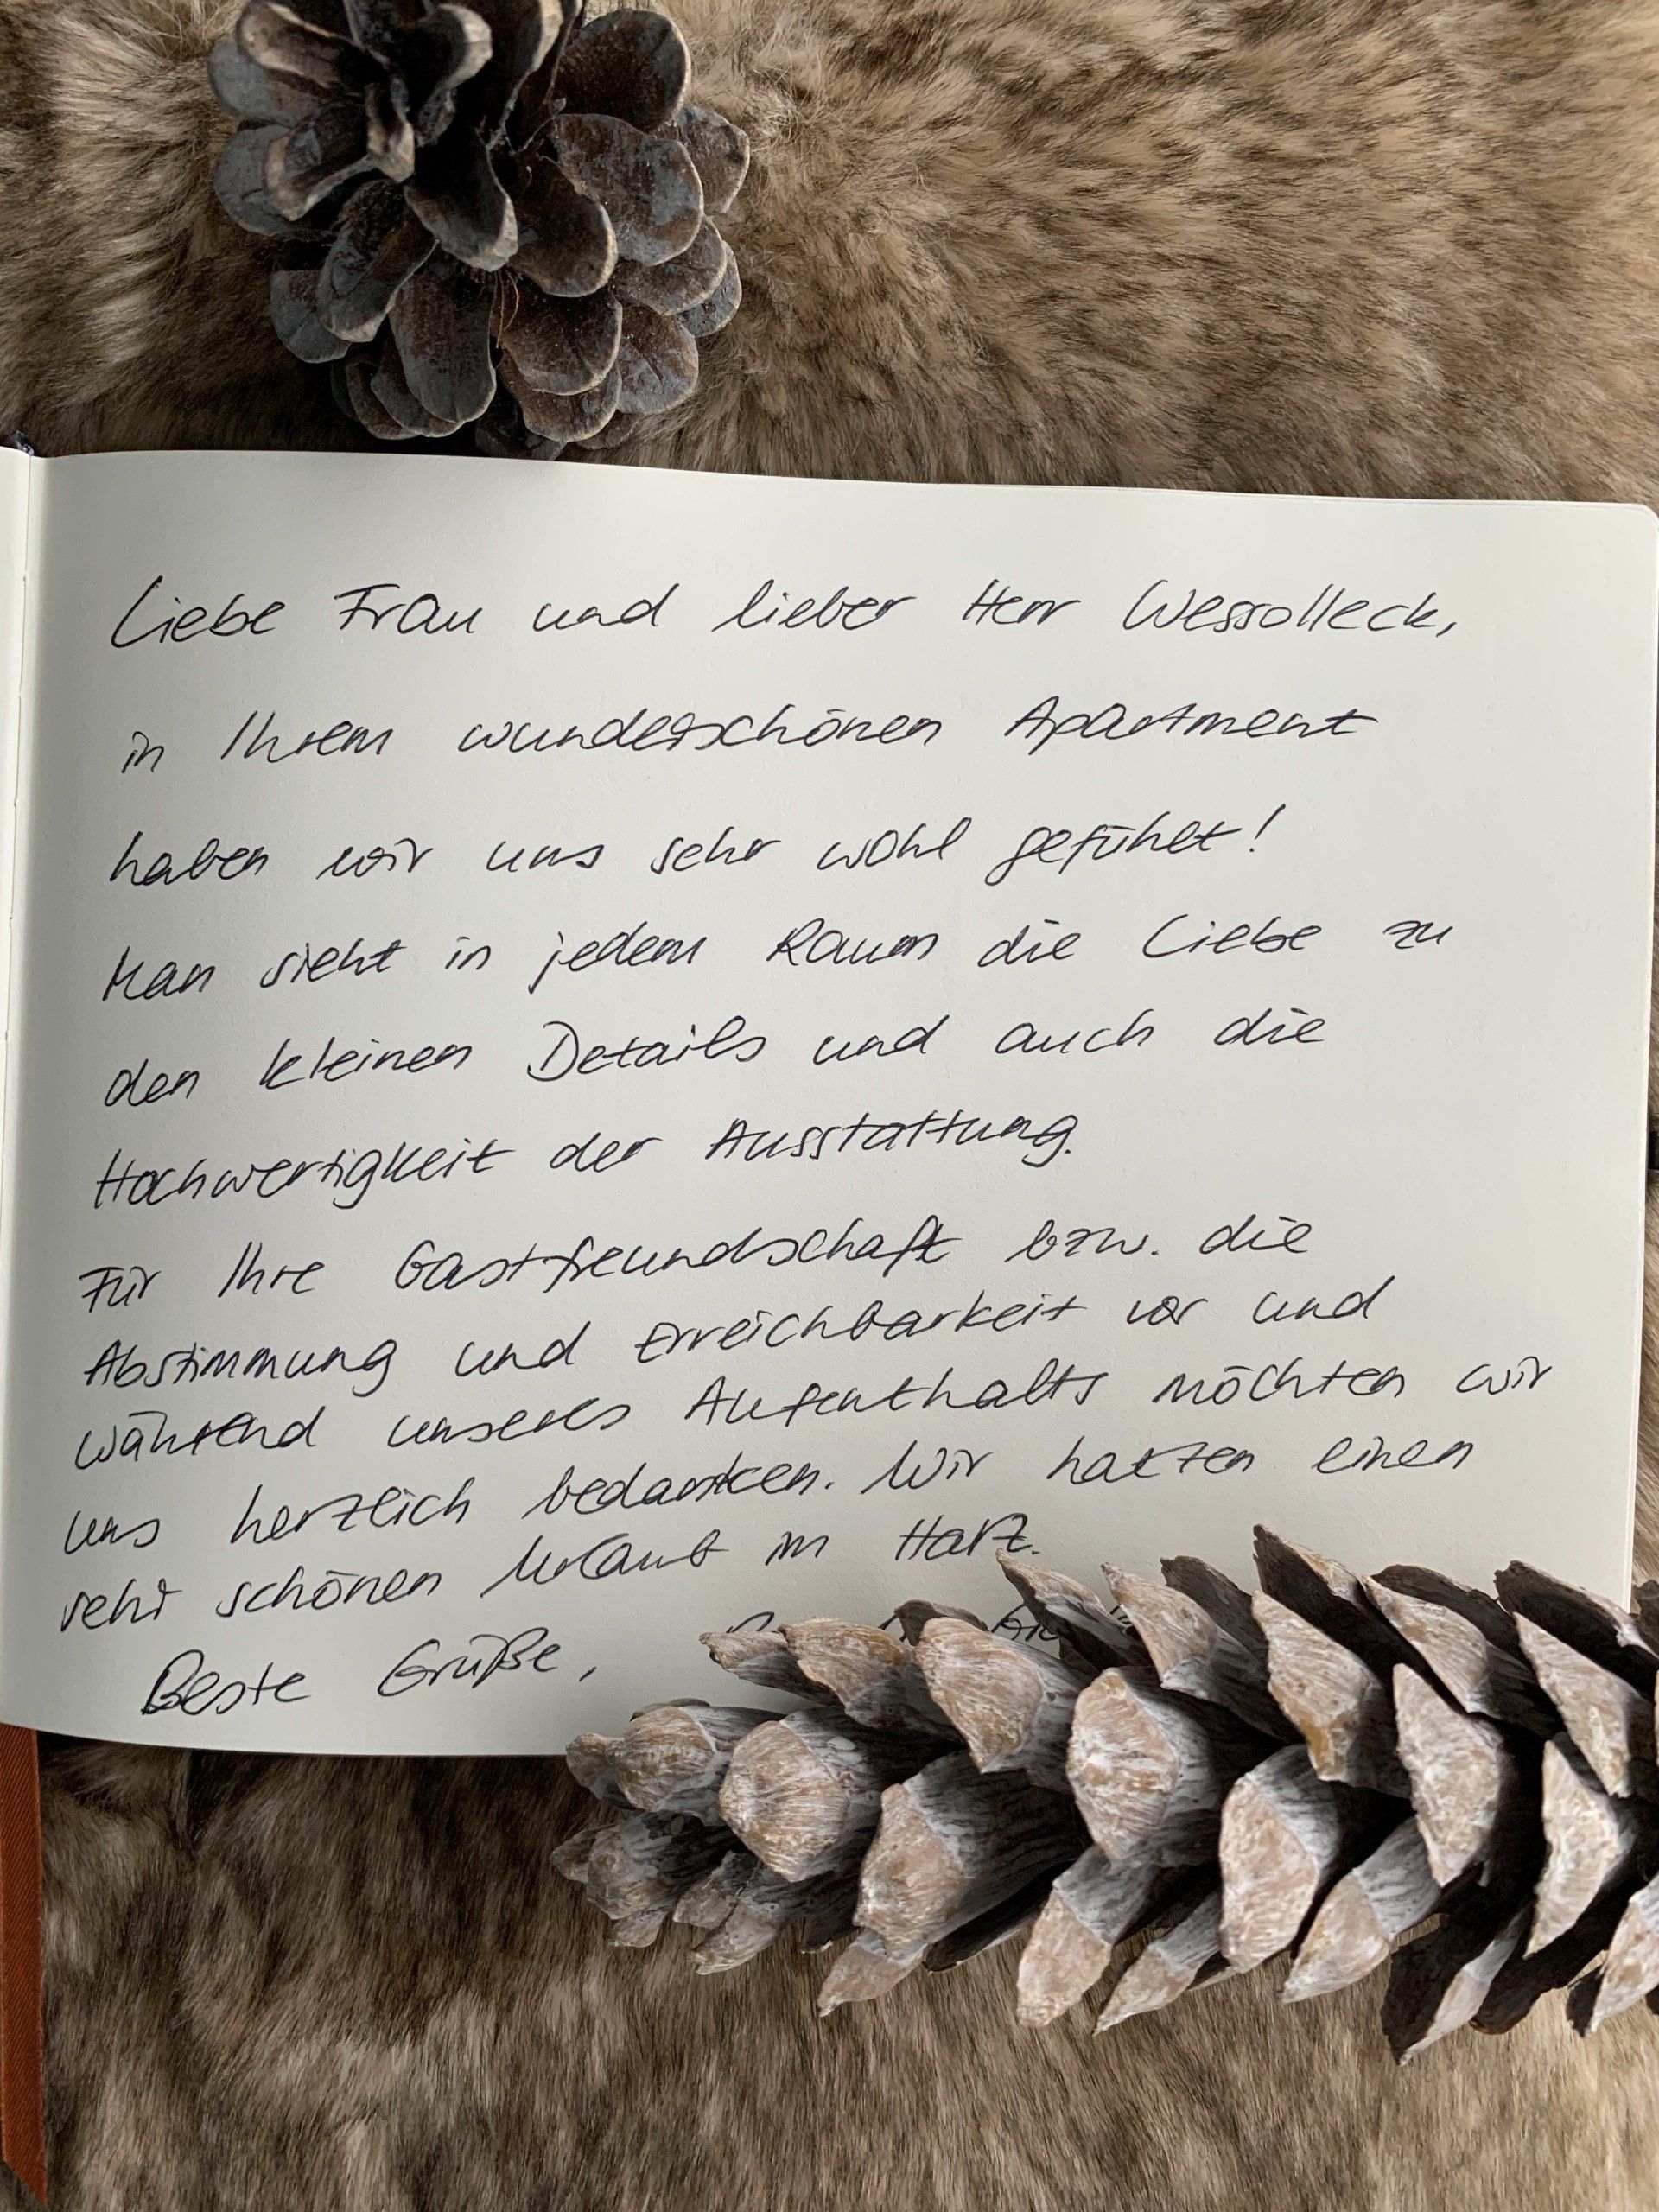 Liebe Frau und lieber Herr Wessolleck,
in Ihrem wunderschönen Apartment
haben wir uns sehr wohl gefühlt!
Man sieht in jedem Raum die Liebe zu
den kleinen Details und auch die
Hochwertigkeit der Ausstattung.
Für Ihre Gastfreundschaft bzw. die
Abstimmung und Erreichbarkeit vor und
während unseres Aufenthalts möchten wir
uns herzlich bedanken. Wir hatten einen
sehr schönen Urlaub im Harz.
Beste Grüße,